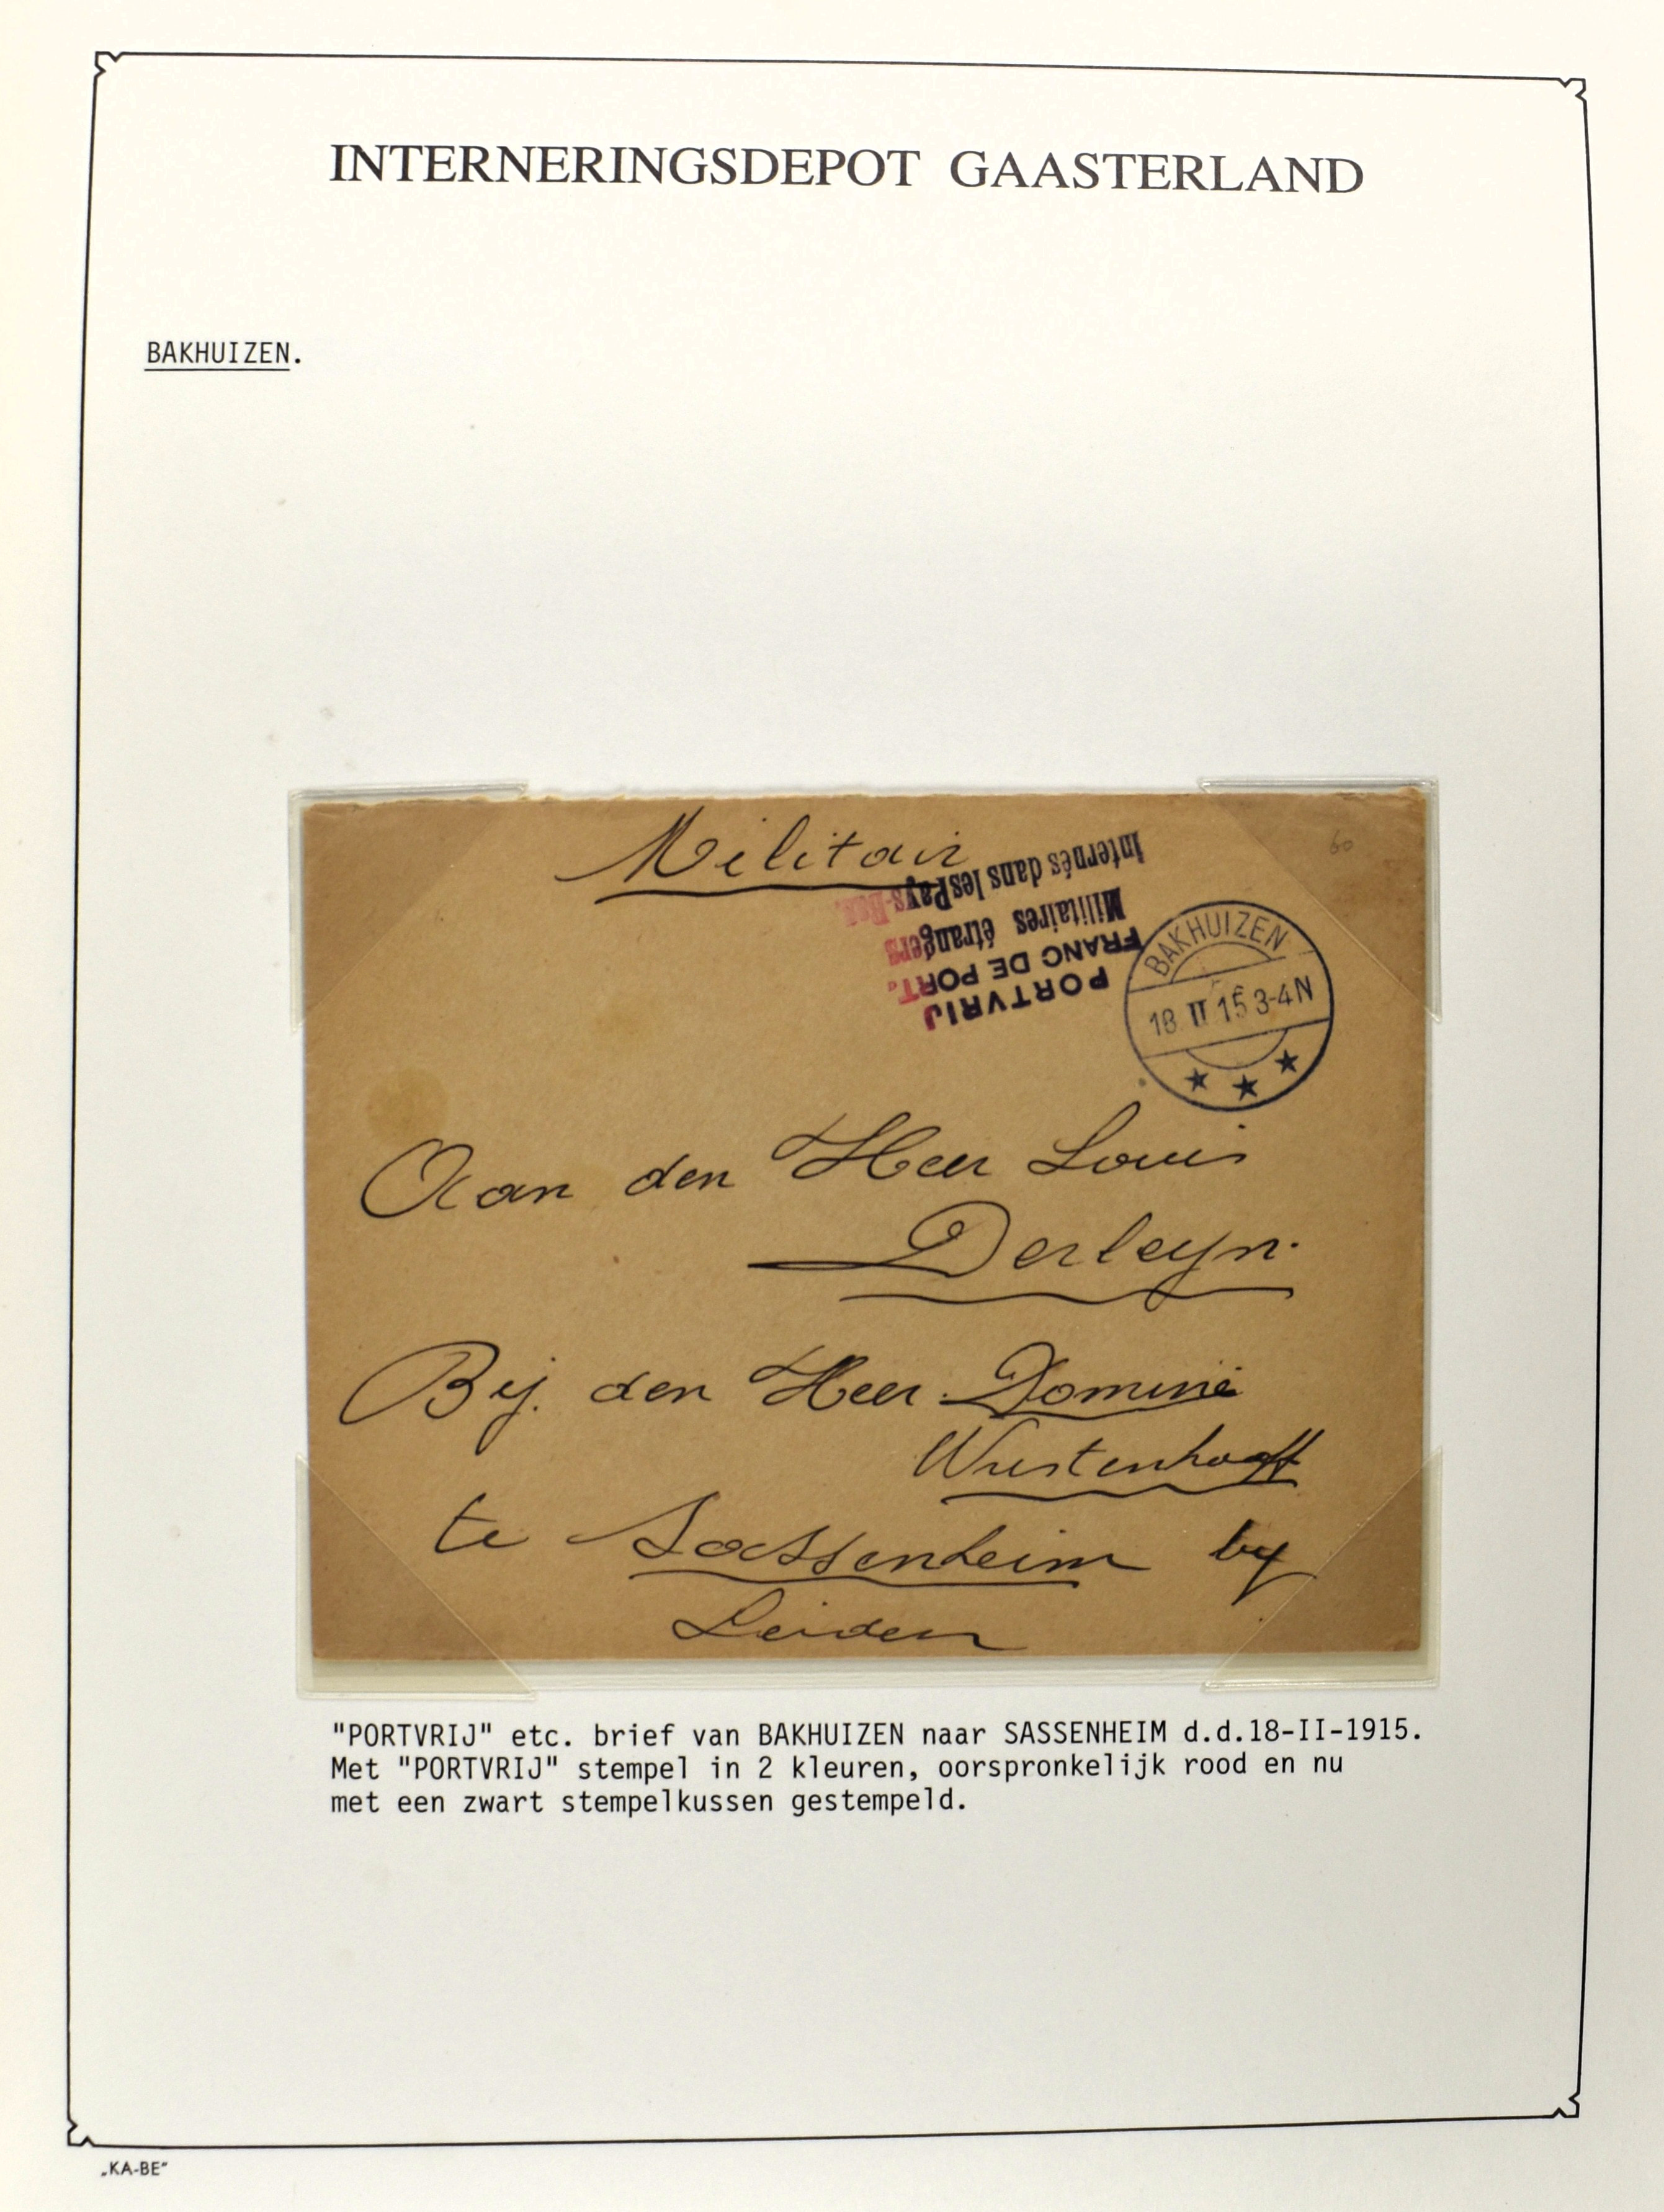 INTERNERINGSDEPOT GAASTERLAND
BAKHUIZEN.
Militair
60
PORTVRIJ
FRANC DE PORT.
Militaires étrangers
Internés dans les Pays-Bas.
BAKHUIZEN
18 II 15 3-4N
Aan den Heer Louis
Derleyn.
Bij. den Heer Dominé
te Sassenheim by
Leiden
"PORTVRIJ" etc. brief van BAKHUIZEN naar SASSENHEIM d.d.18-II-1915.
Met "PORTVRIJ" stempel in 2 kleuren, oorspronkelijk rood en nu
met een zwart stempelkussen gestempeld.
„KA-BE"